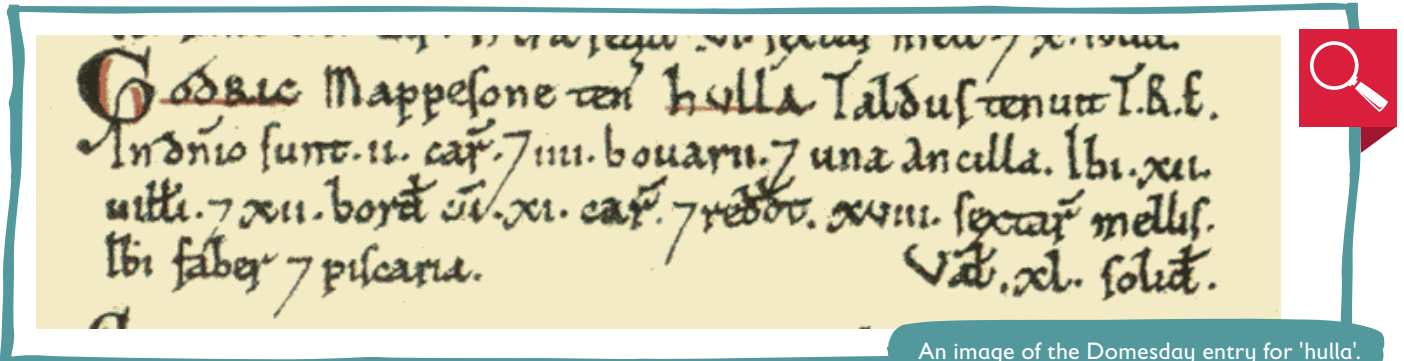 Godric Mappesone ten̄ hulla Taldus tenuit T.R.E.
In dn̄io sunt .ii. car̄. ⁊ iiii. bouarii. ⁊ una ancilla. Ibi .xii.
uilłi. ⁊ xii. bord̄ cū .xi. car̄. ⁊ redd̄t. xviii. sextar̄ mellis.
Ibi faber ⁊ piscaria.
Vał. xl. solid̄.
An image of the Domesday entry for 'hulla'.